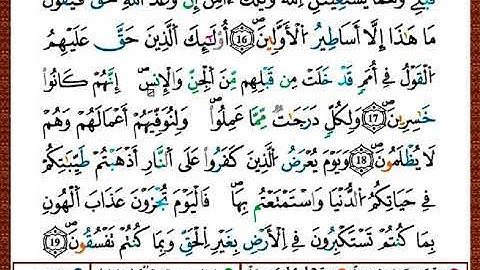 قَبْلِي وَهُمَا يَسْتَغِيثَانِ ٱللَّهَ وَيْلَكَ ءَامِنْ إِنَّ وَعْدَ ٱللَّهِ حَقٌّ فَيَقُولُ
مَا هَٰذَآ إِلَّآ أَسَٰطِيرُ ٱلْأَوَّلِينَ (16) أُوْلَٰٓئِكَ ٱلَّذِينَ حَقَّ عَلَيْهِمُ
ٱلْقَوْلُ فِيٓ أُمَمٍ قَدْ خَلَتْ مِن قَبْلِهِم مِّنَ ٱلْجِنِّ وَٱلْإِنسِ إِنَّهُمْ كَانُوا۟
خَٰسِرِينَ (17) وَلِكُلٍّ دَرَجَٰتٌ مِّمَّا عَمِلُوا۟ وَلِنُوَفِّيَهُمْ أَعْمَٰلَهُمْ وَهُمْ
لَا يُظْلَمُونَ (18) وَيَوْمَ يُعْرَضُ ٱلَّذِينَ كَفَرُوا۟ عَلَى ٱلنَّارِ أَذْهَبْتُمْ طَيِّبَٰتِكُمْ
فِي حَيَاتِكُمُ ٱلدُّنْيَا وَٱسْتَمْتَعْتُم بِهَا فَٱلْيَوْمَ تُجْزَوْنَ عَذَابَ ٱلْهُونِ
بِمَا كُنتُمْ تَسْتَكْبِرُونَ فِي ٱلْأَرْضِ بِغَيْرِ ٱلْحَقِّ وَبِمَا كُنتُمْ تَفْسُقُونَ (19)